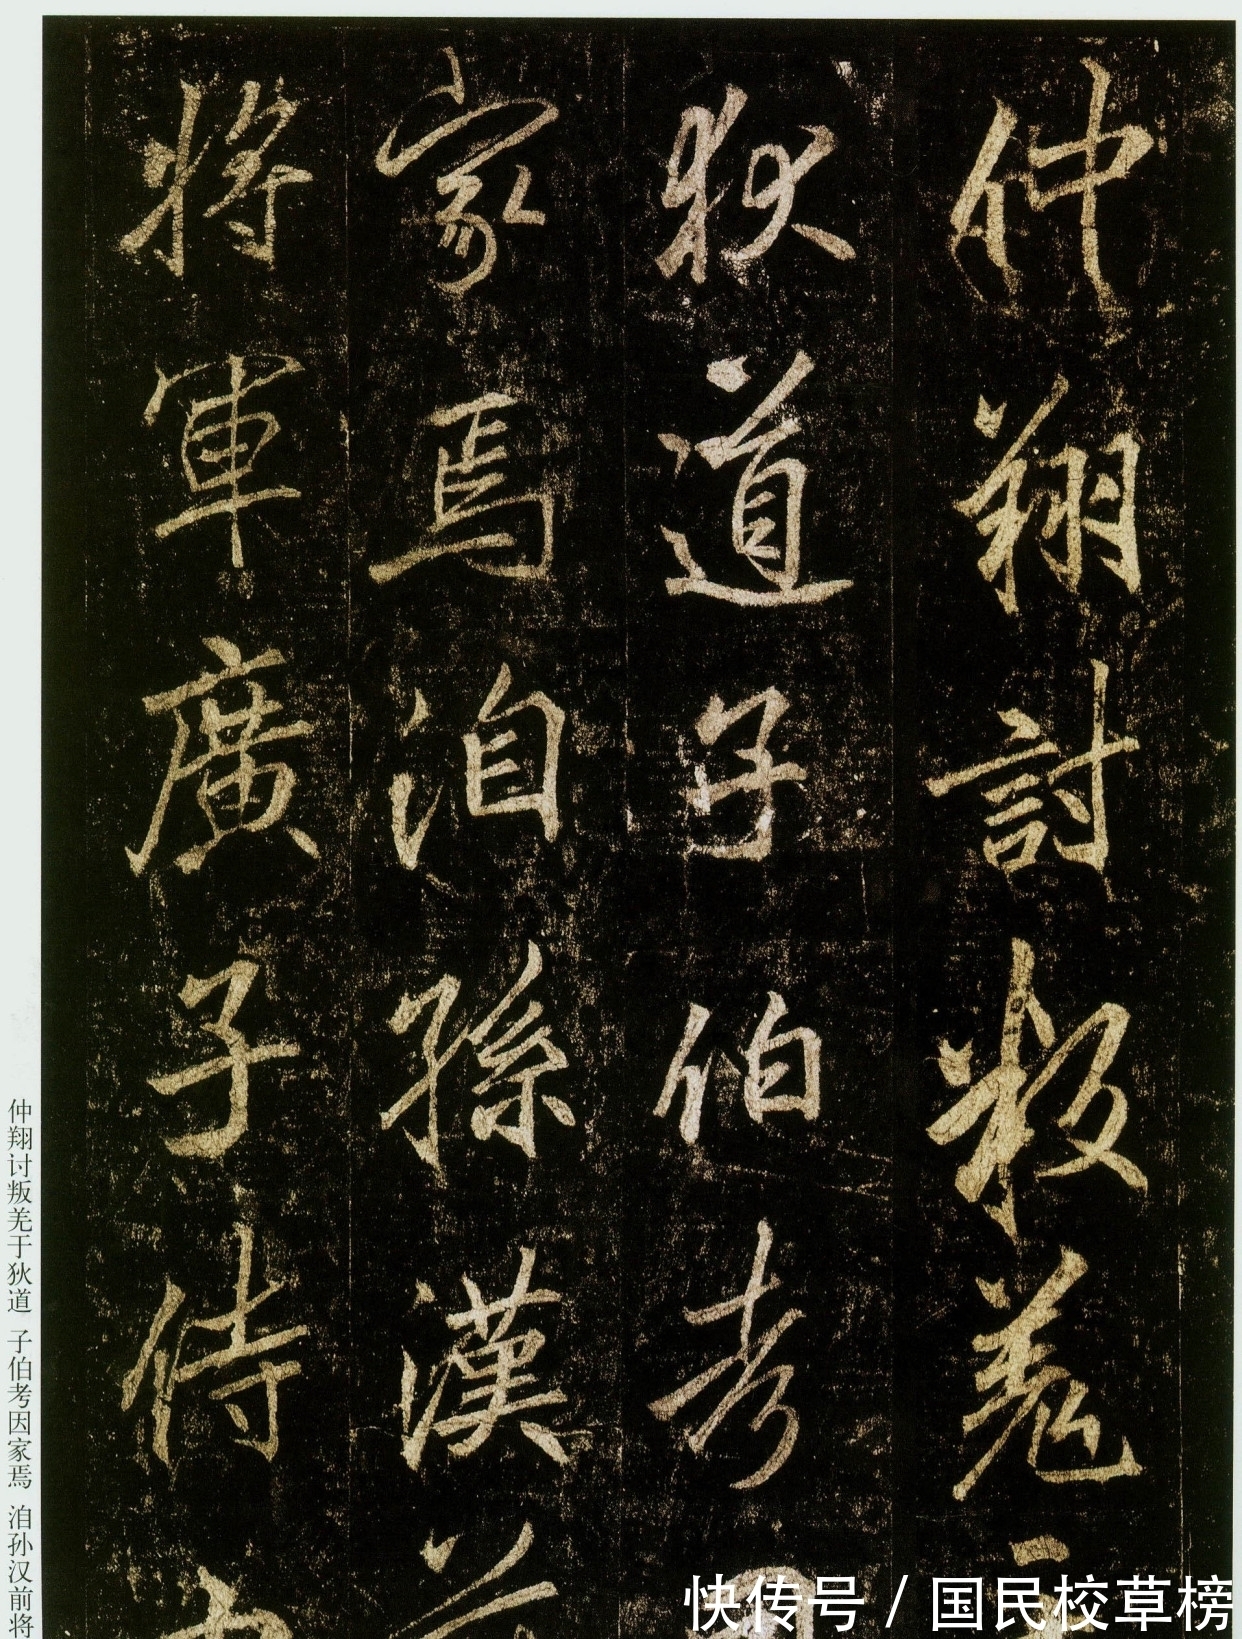 仲翔討叛羌
狄道子伯考
家焉洎孫漢
將軍廣子侍
仲翔讨叛羌于狄道 子伯考因家焉 洎孙汉前将
快传号 / 国民校草榜